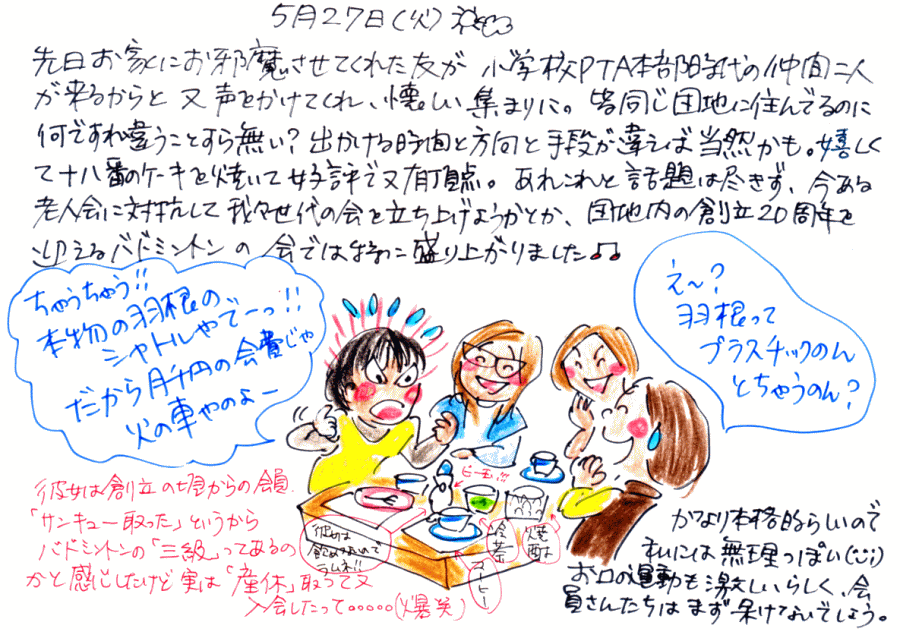 5月27日(火)
先日お家にお邪魔させてくれた友が 小学校PTA本部時代の仲間二人
が来るからと 又声をかけてくれ、懐しい 集まりに。皆同じ団地に住んでるのに
何ですれ違うことすら無い?出かける時間と方向と手段が違えば当然かも。嬉しく
て十八番のケーキを焼いて好評で又有頂点。あれこれと話題は尽きず、今ある
老人会に対抗して我々世代の会を立ち上げようかとか、団地内の創立20周年を
迎えるバドミントンの会では特に盛り上がりました♫
ちゃうちゃう!!
本物の羽根の、
シャトルやでーっ!!
だから月千円の会費じゃ
火の車やのよー
え〜?
羽根って
プラスチックのん
とちゃうのん?
彼女は創立の頃からの会員
「サンキュー取った」というから
バドミントンの「三級」ってあるの
かと感じしたけど実は「産休」取って又
入会したって……(爆笑)
ビー玉!!!
飲めないで
ラムネ!!
冷茶
焼酎
コーヒー
かなり本格的らしいので
私には無理っぽい
お口の運動も激しいらしく、会
員さんたちはまず呆けないでしょう。